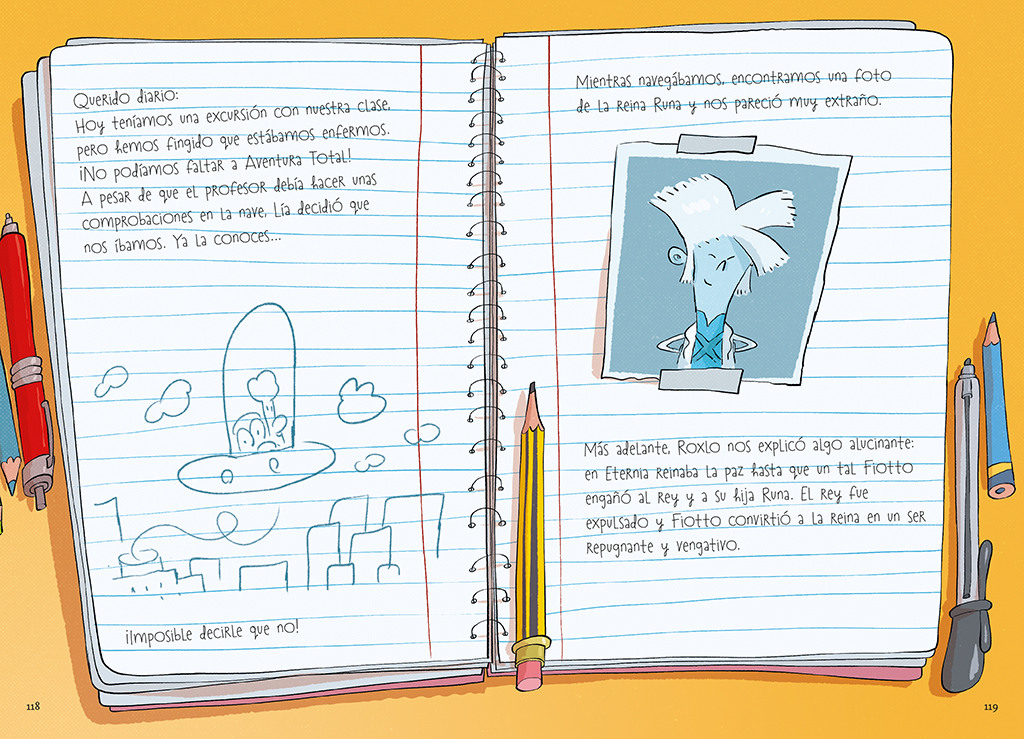 Querido diario:
Hoy teníamos una excursión con nuestra clase,
pero hemos fingido que estábamos enfermos.
¡No podíamos faltar a Aventura Total!
A pesar de que el profesor debía hacer unas
comprobaciones en la nave, Lía decidió que
nos íbamos. Ya la conoces...
¡Imposible decirle que no!
118
Mientras navegábamos, encontramos una foto
de la reina Runa y nos pareció muy extraño.
Más adelante, Roxlo nos explicó algo alucinante:
en Eternia reinaba la paz hasta que un tal Fiotto
engañó al rey y a su hija Runa. El rey fue
expulsado y Fiotto convirtió a la reina en un ser
repugnante y vengativo.
119